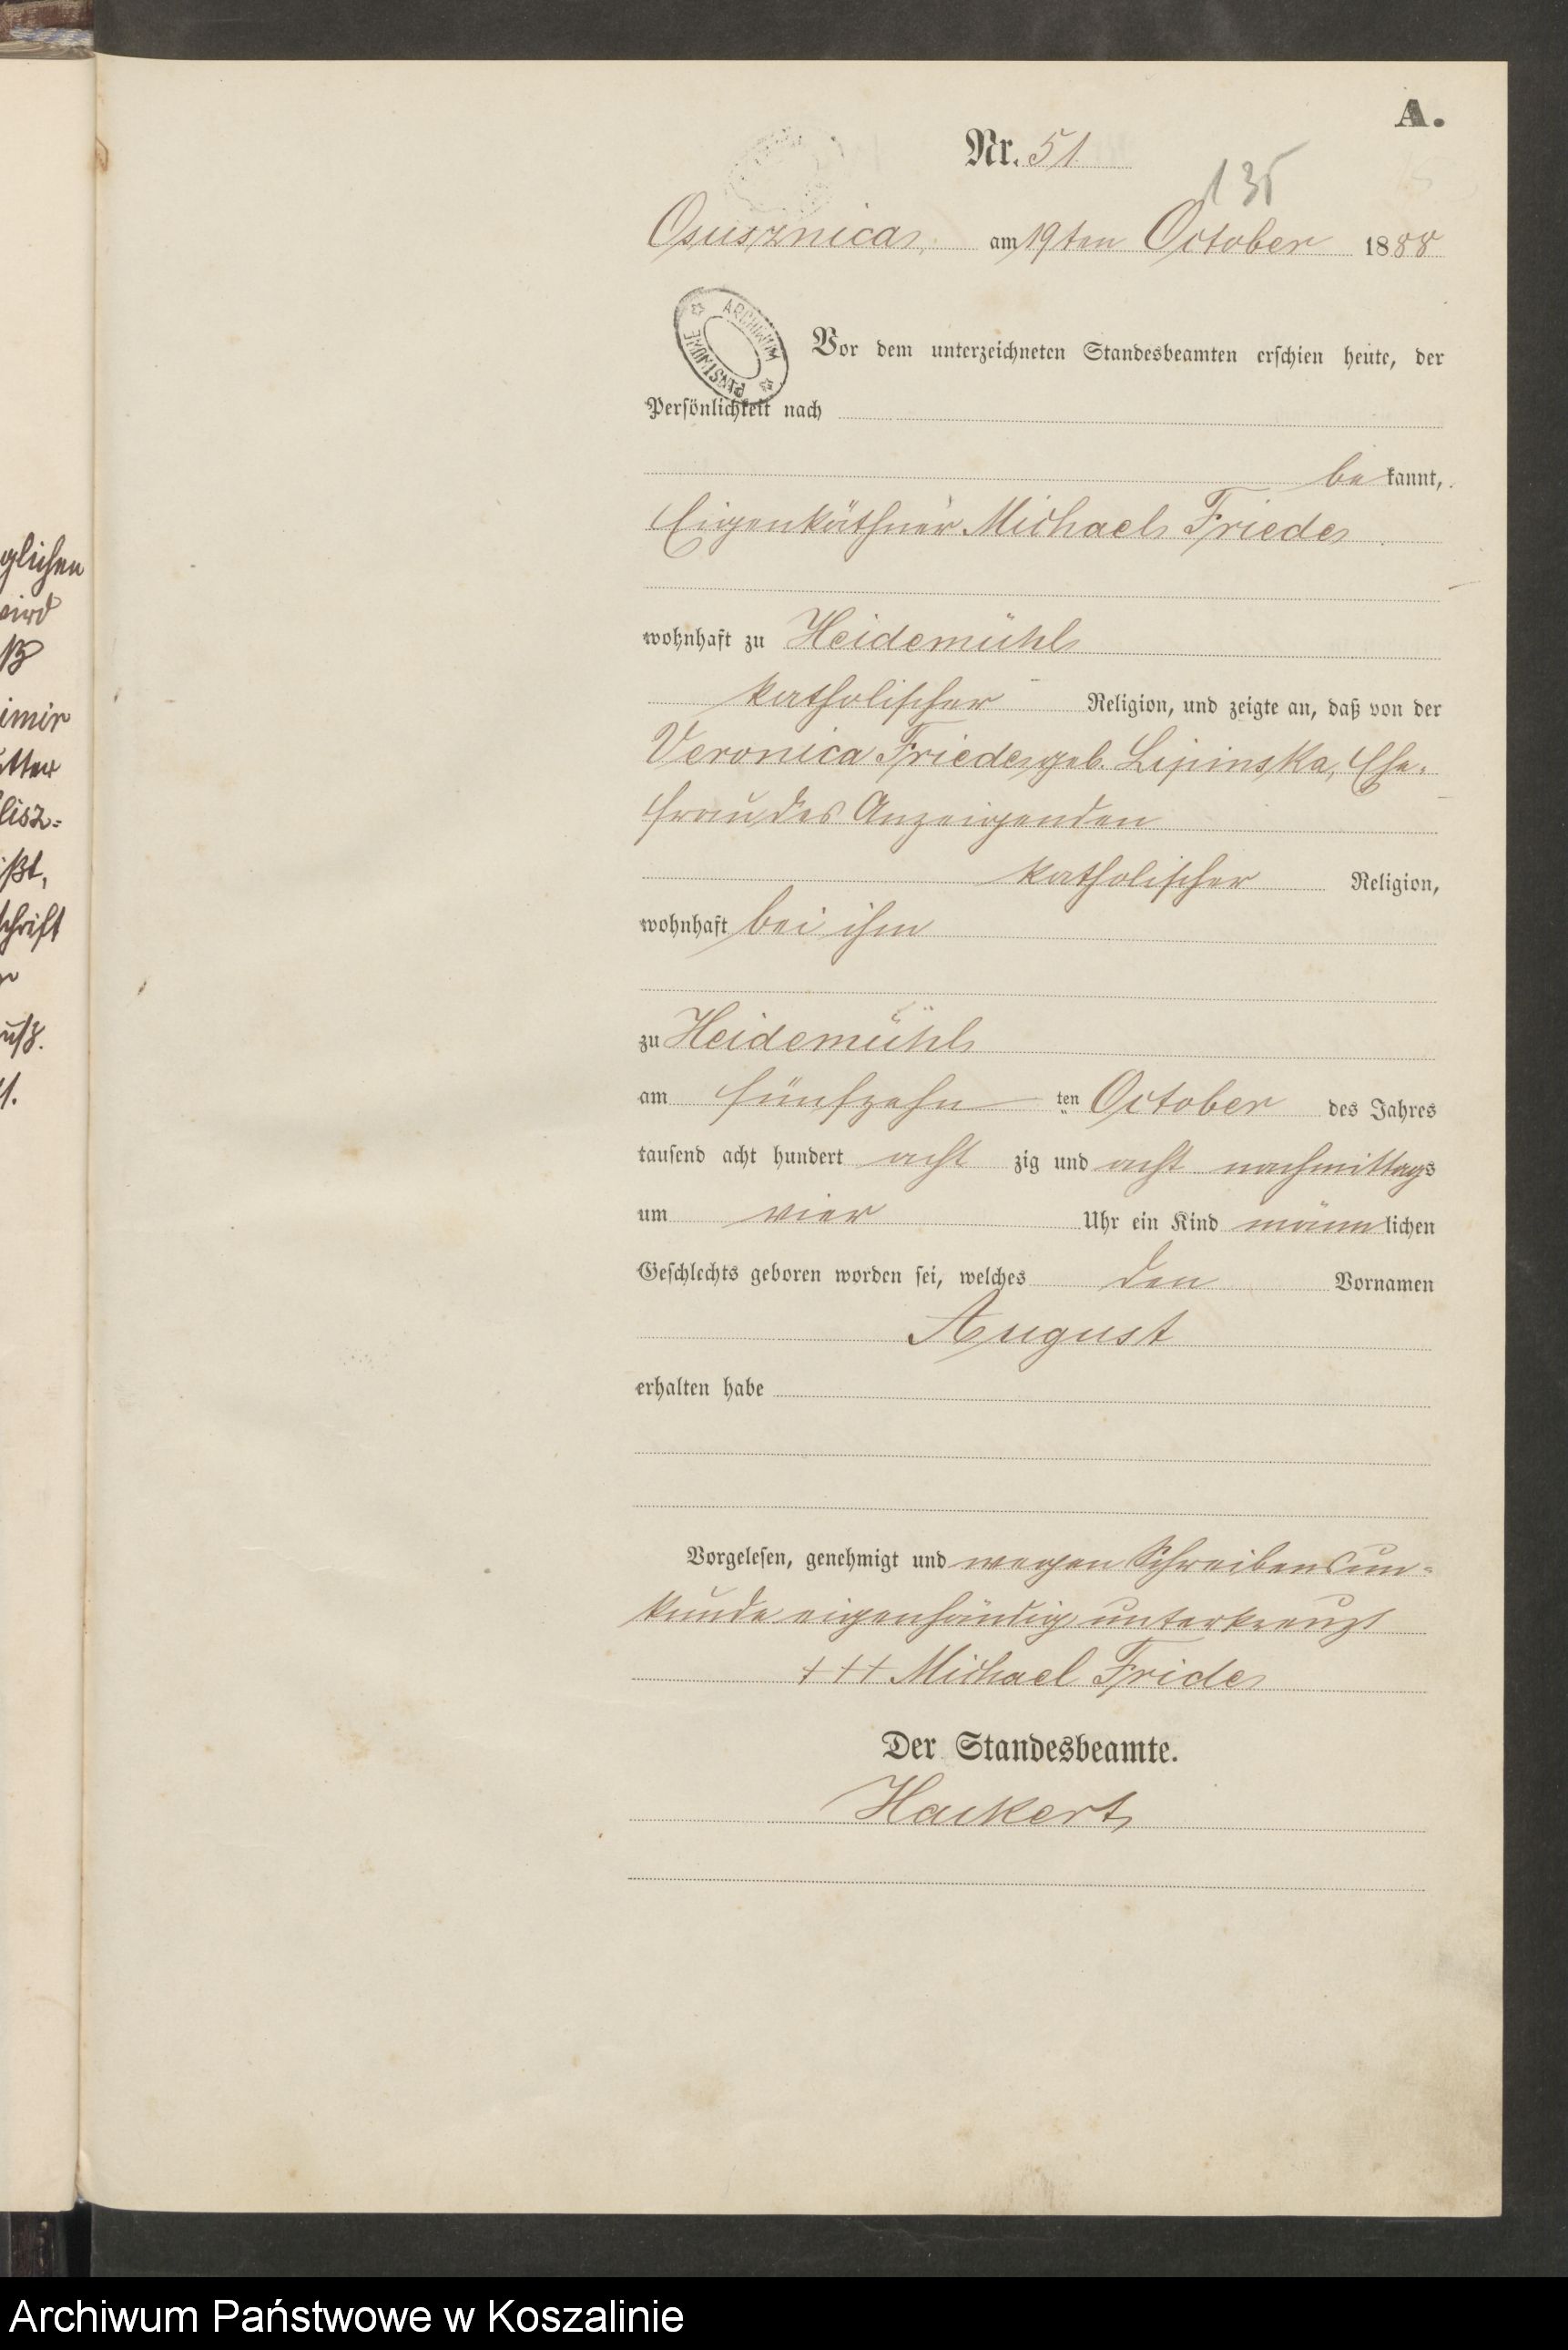 glichen
wird
ß
imir
utter
lisz-
ißt,
schrift
A.
Nr. 51
135
Osusznica, am 19ten October 1888
ARCHIWUM PAŃSTWOWE
Vor dem unterzeichneten Standesbeamten erschien heute, der
Persönlichkeit nach
bekannt,
Eigenkäthner Michael Friede
wohnhaft zu Heidemühl
katholischer Religion, und zeigte an, daß von der
Veronica Friede, geb. Lipinska, Ehe-
frau des Anzeigenden
katholischer Religion,
wohnhaft bei ihm
zu Heidemühl
am fünfzehn ten October des Jahres
tausend acht hundert acht zig und acht nachmittags
um vier Uhr ein Kind männlichen
Geschlechts geboren worden sei, welches den Vornamen
August
erhalten habe
Vorgelesen, genehmigt und wegen Schreibensun-
kunde eigenhändig unterkreuzt
+++ Michael Fride
Der Standesbeamte.
Hackert
Archiwum Państwowe w Koszalinie